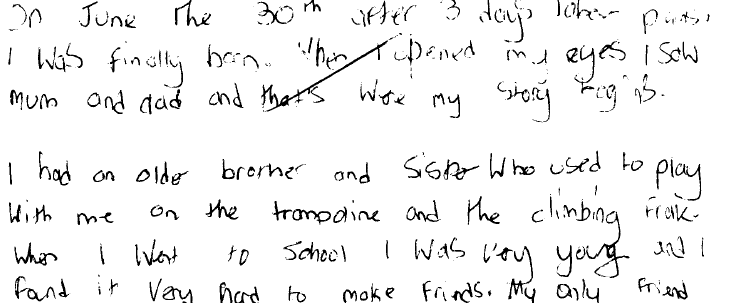 On June the 30th after 3 days labour pains,
I was finally born. When I opened my eyes I saw
mum and dad and that's were my story begins.
I had an older brother and sister who used to play
with me on the trampoline and the climbing frame.
When I went to school I was very young and I
found it very hard to make friends. My only friend